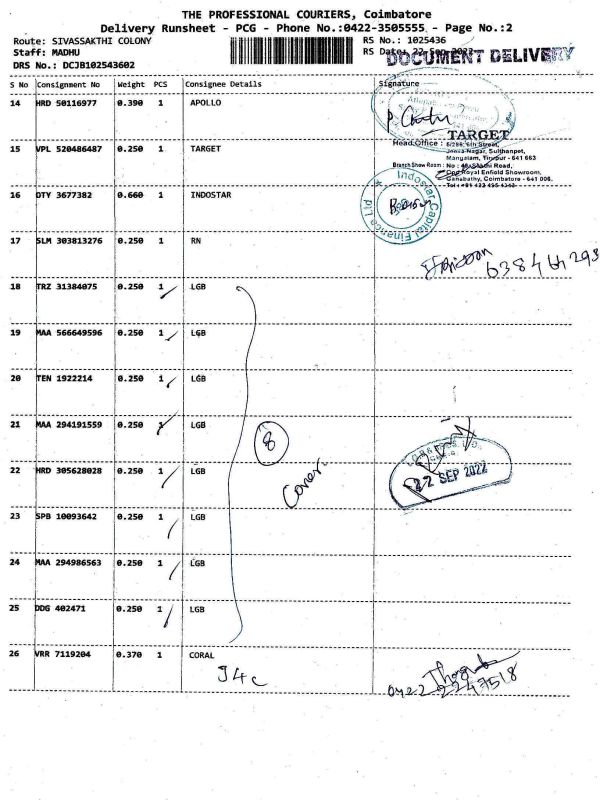 THE PROFESSIONAL COURIERS, Coimbatore
Delivery Runsheet - PCG - Phone No.:0422-3505555 - Page No.:2
Route: SIVASSAKTHI COLONY
RS No.: 1025436
Staff: MADHU
RS Date: 22-Sep-2022
DOCUMENT DELIVERY
DRS No.: DCJB102543602
S No Consignment No Weight PCS Consignee Details Signature
14 HRD 50116977 0.390 1 APOLLO
15 VPL 520486487 0.250 1 TARGET
TARGET
Head Office : 6/286, 6th Street,
Jeeva Nagar, Sulthanpet,
Mangalam, Tirupur - 641 663
Branch Show Room : No : Sathi Road,
Opp Royal Enfield Showroom,
Ganabathy, Coimbatore - 641 006.
16 OTY 3677382 0.660 1 INDOSTAR
Indostar Capital Finance Ltd
17 SLM 303813276 0.250 1 RN
18 TRZ 31384075 0.250 1 LGB
19 MAA 566649596 0.250 1 LGB
20 TEN 1922214 0.250 1 LGB
21 MAA 294191559 0.250 1 LGB
8
Cover
22 HRD 305628028 0.250 1 LGB
22 SEP 2022
23 SPB 10093642 0.250 1 LGB
24 MAA 294986563 0.250 1 LGB
25 DDG 402471 0.250 1 LGB
26 VRR 7119204 0.370 1 CORAL